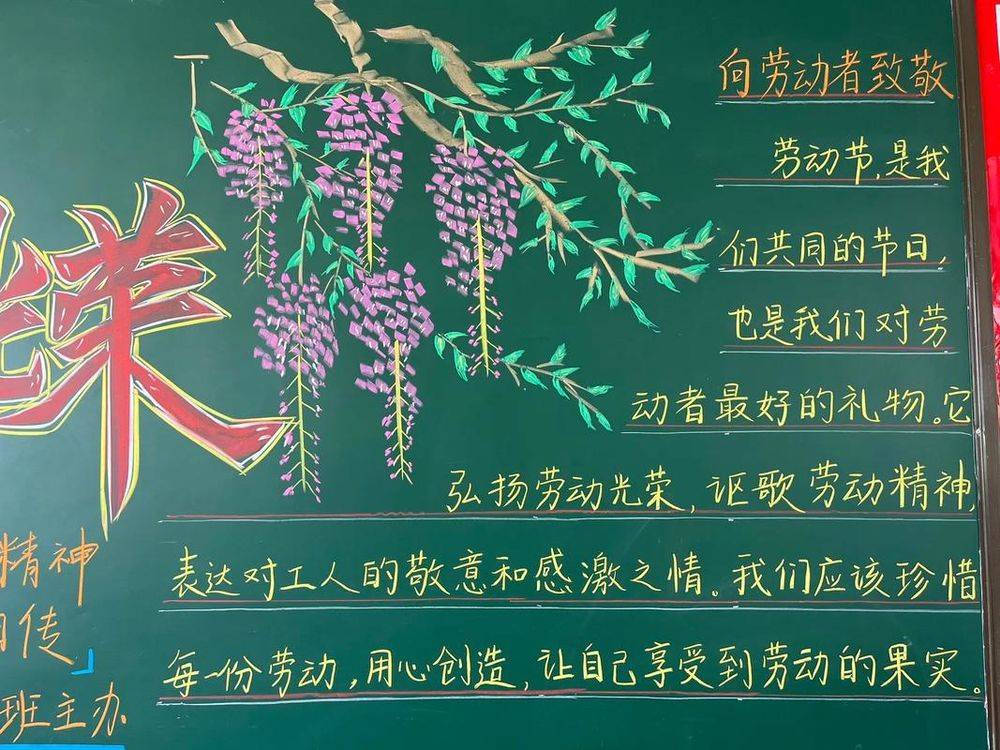 向劳动者致敬
劳动节,是我
们共同的节日,
也是我们对劳
动者最好的礼物。它
弘扬劳动光荣,讴歌劳动精神,
表达对工人的敬意和感激之情。我们应该珍惜
每一份劳动,用心创造,让自己享受到劳动的果实。
荣
精神
传」
班主办